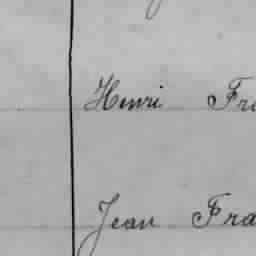 Henri Fra
Jean Fra